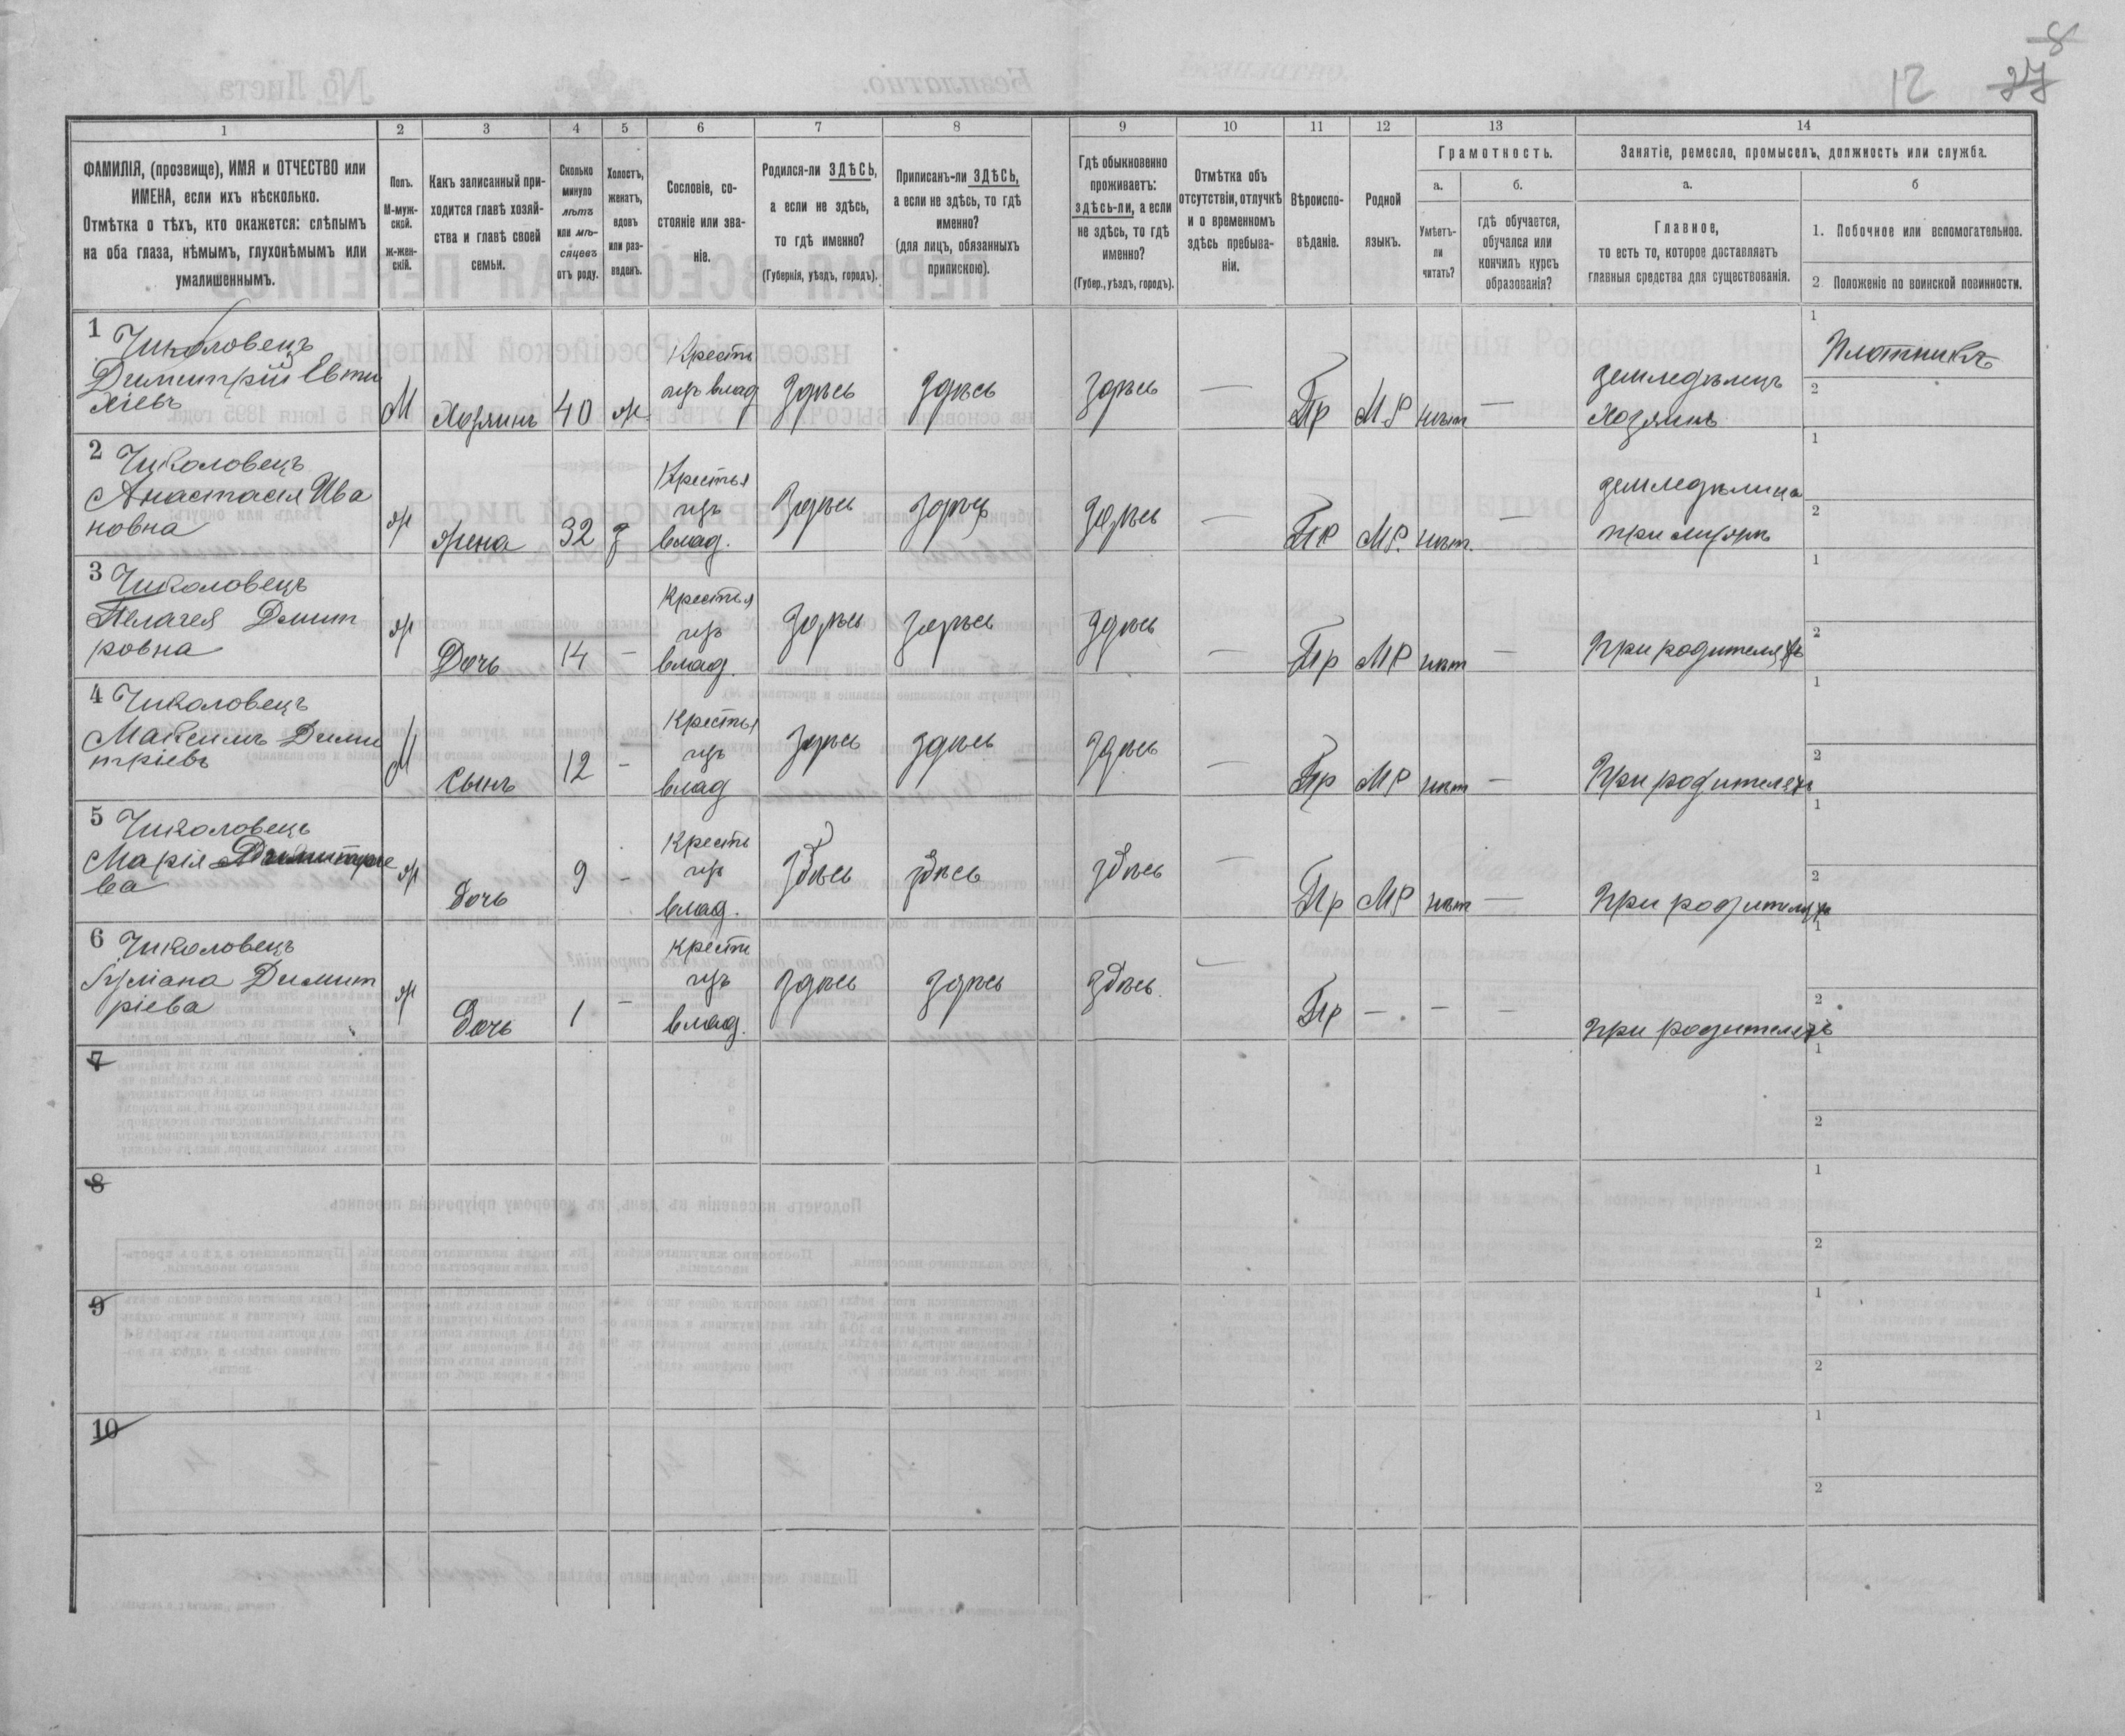 12 27 8
1 2 3 4 5 6 7 8 9 10 11 12 13 14
ФАМИЛІЯ, (прозвище), ИМЯ и ОТЧЕСТВО или
ИМЕНА, если ихъ нѣсколько.
Отмѣтка о тѣхъ, кто окажется: слѣпымъ
на оба глаза, нѣмымъ, глухонѣмымъ или
умалишеннымъ.
Полъ.
М-муж-
ской.
Ж-жен-
скій.
Какъ записанный при-
ходится главѣ хозяй-
ства и главѣ своей
семьи.
Сколько
минуло
лѣтъ
или мѣ-
сяцевъ
отъ роду.
Холостъ,
женатъ,
вдовъ
или раз-
веденъ.
Сословіе, со-
стояніе или зва-
ніе.
Родился-ли ЗДѢСЬ,
а если не здѣсь,
то гдѣ именно?
(Губернія, уѣздъ, городъ).
Приписанъ-ли ЗДѢСЬ,
а если не здѣсь, то гдѣ
именно?
(для лицъ, обязанныхъ
припискою).
Гдѣ обыкновенно
проживаетъ:
здѣсь-ли, а если
не здѣсь, то гдѣ
именно?
(Губер., уѣздъ, городъ).
Отмѣтка объ
отсутствіи, отлучкѣ
и о временномъ
здѣсь пребыва-
ніи.
Вѣроиспо-
вѣданіе.
Родной
языкъ.
Грамотность.
а.
Умѣетъ-
ли
читать?
б.
гдѣ обучается,
обучался или
кончилъ курсъ
образованія?
Занятіе, ремесло, промыселъ, должность или служба.
а.
Главное,
то есть то, которое доставляетъ
главныя средства для существованія.
б
1. Побочное или вспомогательное.
2. Положеніе по воинской повинности.
1 Чиколовецъ
Димитрій Евти
хіевъ
М Хозяинъ 40 ж.
Кресть
изъ влад
здѣсь здѣсь здѣсь — Пр МР нѣт —
земледѣлецъ
Хозяинъ
1 Плотникъ
2
2 Чиколовецъ
Анастасія Ива
новна
ж жена 32 з
Крестья
изъ
влад.
здѣсь здѣсь здѣсь — ПР МР. нѣт. —
земледѣлица
при мужѣ
1
2
3 Чиколовецъ
Пелагея Дмит
ровна
ж Дочь 14 —
Крестья
изъ
влад.
здѣсь здѣсь здѣсь — Пр МР нѣт —
При родителяхъ
1
2
4 Чиколовецъ
Максимъ Дими
тріевъ
М Сынъ 12 —
Крестья
изъ
влад
здѣсь здѣсь здѣсь — Пр МР нѣт —
При родителяхъ
1
2
5 Чиколовецъ
Марія Димитрие
ва
ж дочь 9 —
Кресть
изъ
влад.
здѣсь здѣсь здѣсь — Пр МР нѣт —
При родителяхъ
1
2
6 Чиколовецъ
Іуліана Димит
ріева
ж дочь 1 —
Кресть
изъ
влад.
здѣсь здѣсь здѣсь — Пр — — —
При родителяхъ
1
2
7
1
2
8
1
2
9
1
2
10
1
2